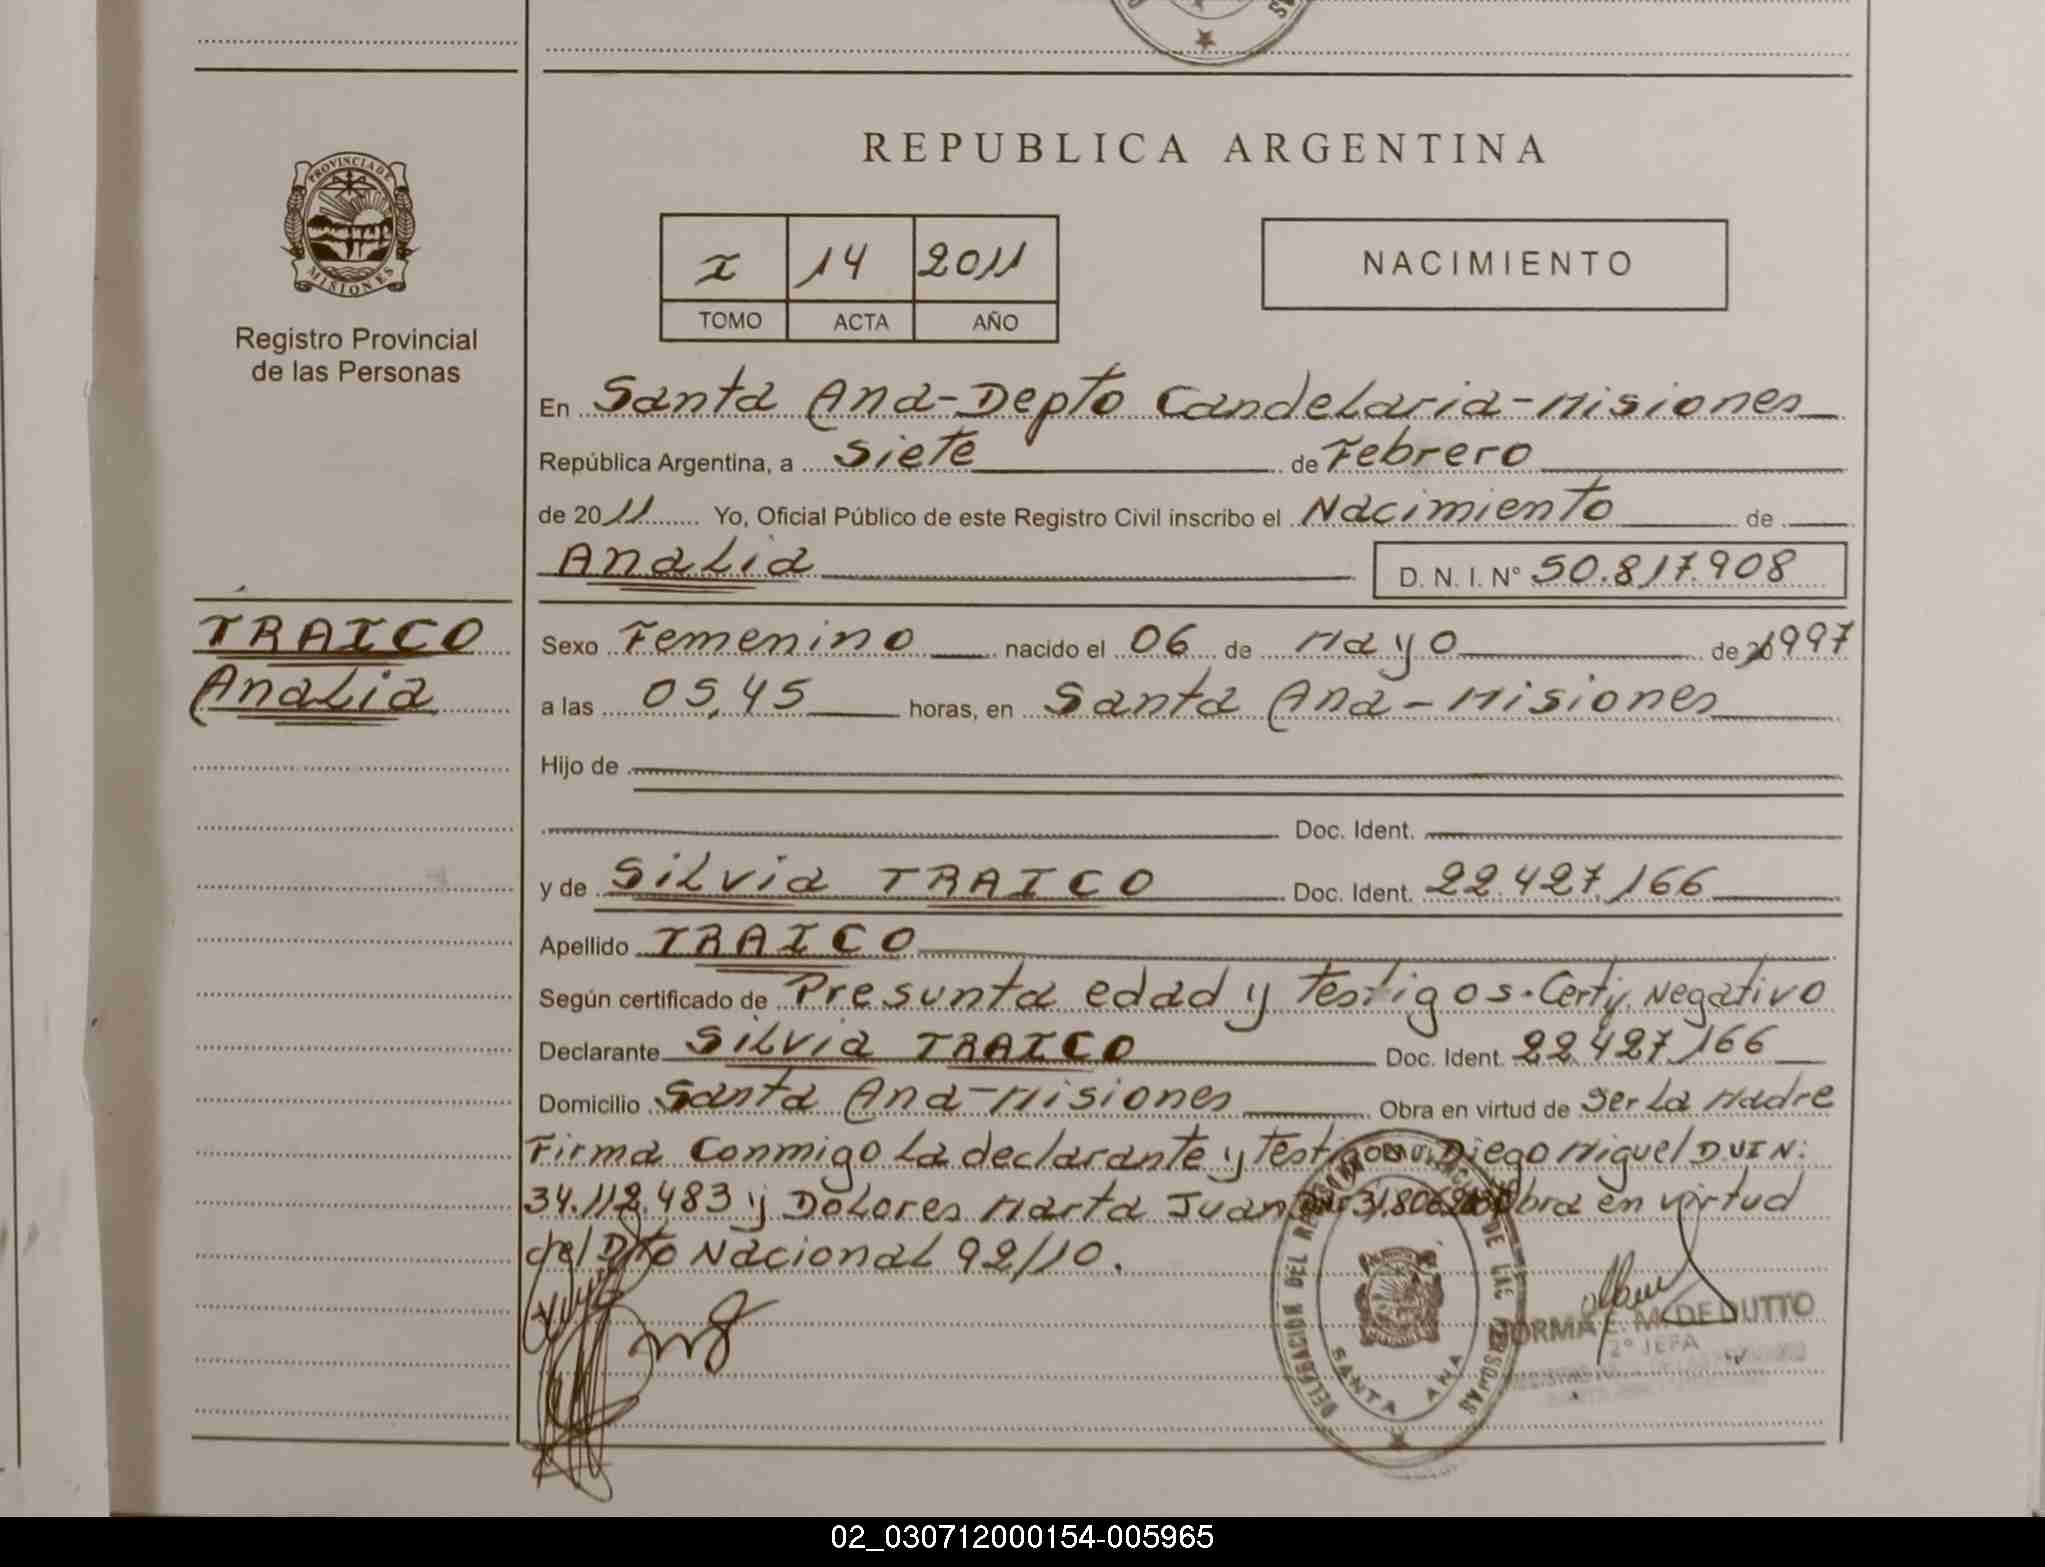 REPUBLICA ARGENTINA
PROVINCIA DE
MISIONES
Registro Provincial
de las Personas
I 14 2011
TOMO ACTA AÑO
NACIMIENTO
En Santa Ana-Depto Candelaria-Misiones
República Argentina, a Siete de Febrero
de 2011 Yo, Oficial Público de este Registro Civil inscribo el Nacimiento de
Analia D. N. I. N° 50.817.908
TRAICO
Analia
Sexo Femenino nacido el 06 de Mayo de 1997
a las 05,45 horas, en Santa Ana-Misiones
Hijo de
Doc. Ident.
y de Silvia TRAICO Doc. Ident. 22.427.166
Apellido TRAICO
Según certificado de Presunta edad y Testigos. Certif. Negativo
Declarante Silvia TRAICO Doc. Ident. 22.427.166
Domicilio Santa Ana-Misiones Obra en virtud de Ser La Madre
Firma Conmigo La declarante y Testigos Diego Miguel D.U.I N:
34.112.483 y Dolores Marta Juan Obra en virtud
del Dto Nacional 92/10.
DELEGACION DEL DE LAS PERSONAS
SANTA ANA
NORMA E. M. DE DUTTO
2° JEFA
02_030712000154-005965